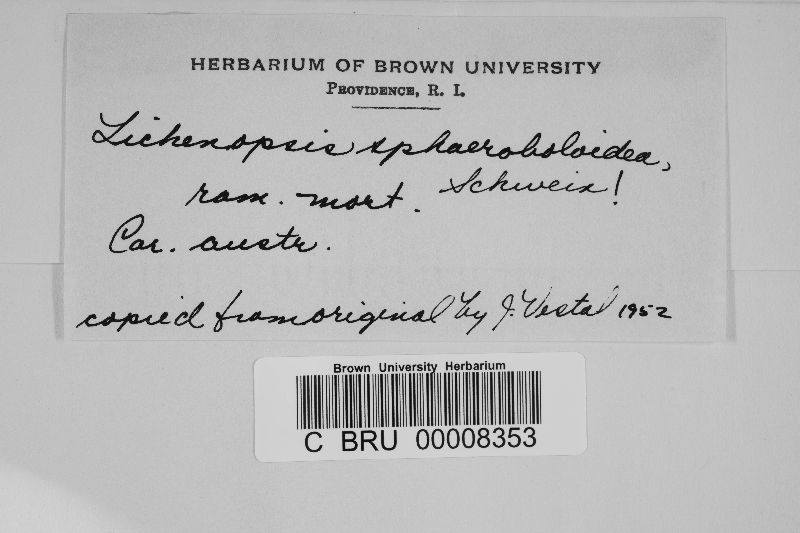 HERBARIUM OF BROWN UNIVERSITY
PROVIDENCE, R. I.
Lichenopsis sphaeroboloidea,
Schweix!
ram. mort.
Car. austr.
copied from original by J. Vestal 1952
Brown University Herbarium
C BRU 00008353